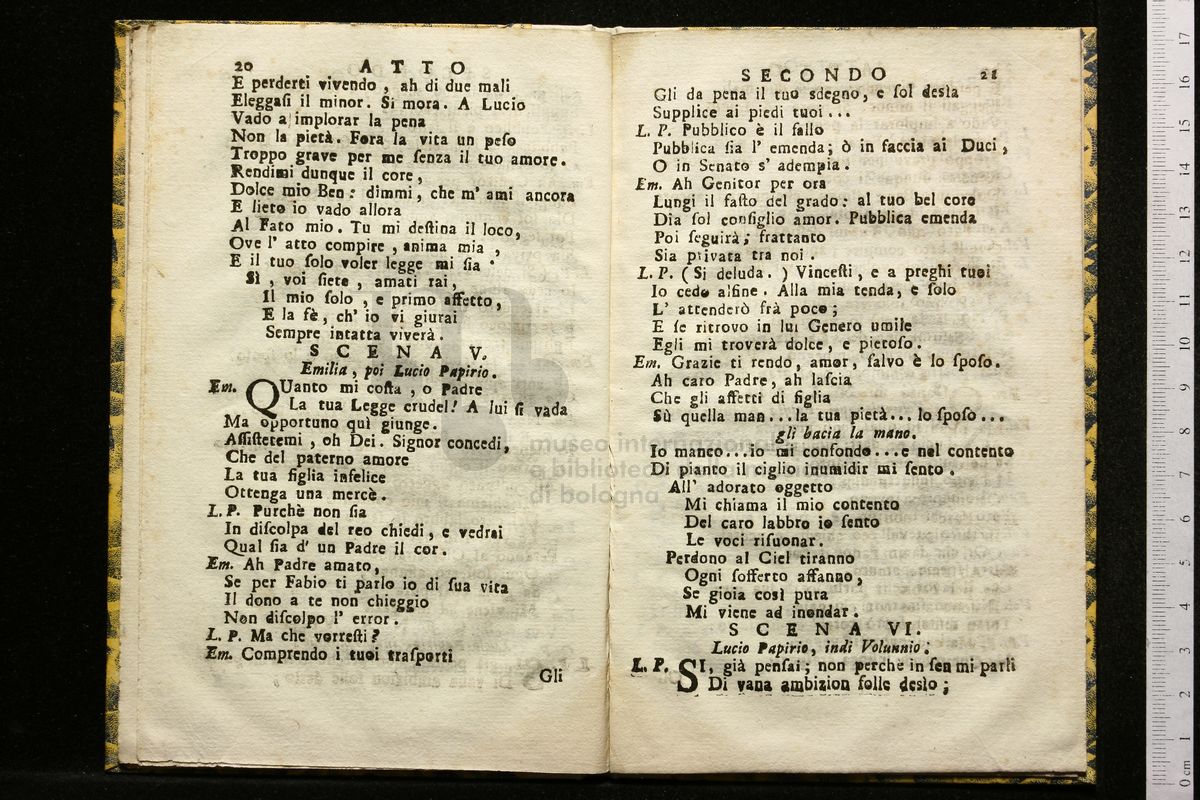 20 ATTO
E perderti vivendo, ah di due mali
Eleggaſi il minor. Si mora. A Lucio
Vado a implorar la pena
Non la pietà. Fora la vita un peſo
Troppo grave per me ſenza il tuo amore.
Rendimi dunque il core,
Dolce mio Ben: dimmi, che m' ami ancora
E lieto io vado allora
Al Fato mio. Tu mi deſtina il loco,
Ove l' atto compire, anima mia,
E il tuo ſolo voler legge mi ſia.
Sì, voi ſiete, amati rai,
Il mio ſolo, e primo affetto,
E la fè, ch' io vi giurai
Sempre intatta viverà.
SCENA V.
Emilia, poi Lucio Papirio.
Em. QUanto mi coſta, o Padre
La tua Legge crudel! A lui ſi vada
Ma opportuno quì giunge.
Aſſiſtetemi, oh Dei. Signor concedi,
Che del paterno amore
La tua figlia infelice
Ottenga una mercè.
L. P. Purchè non ſia
In diſcolpa del reo chiedi, e vedrai
Qual ſia d' un Padre il cor.
Em. Ah Padre amato,
Se per Fabio ti parlo io di ſua vita
Il dono a te non chieggio
Non diſcolpo l' error.
L. P. Ma che vorreſti?
Em. Comprendo i tuoi traſporti
Gli
SECONDO 21
Gli da pena il tuo sdegno, e ſol desìa
Supplice ai piedi tuoi...
L. P. Pubblico è il fallo
Pubblica ſia l' emenda; ò in faccia ai Duci,
O in Senato s' adempia.
Em. Ah Genitor per ora
Lungi il faſto del grado: al tuo bel core
Dia ſol conſiglio amor. Pubblica emenda
Poi ſeguirà; frattanto
Sia privata tra noi.
L. P. (Si deluda.) Vinceſti, e a preghi tuoi
Io cedo alfine. Alla mia tenda, e ſolo
L' attenderò frà poco;
E ſe ritrovo in lui Genero umile
Egli mi troverà dolce, e pietoſo.
Em. Grazie ti rendo, amor, ſalvo è lo ſpoſo.
Ah caro Padre, ah laſcia
Che gli affetti di figlia
Sù quella man...la tua pietà... lo ſpoſo...
gli bacia la mano.
Io manco...io mi confondo...e nel contento
Di pianto il ciglio inumidir mi ſento.
All' adorato oggetto
Mi chiama il mio contento
Del caro labbro io ſento
Le voci riſuonar.
Perdono al Ciel tiranno
Ogni ſofferto affanno,
Se gioia così pura
Mi viene ad inondar.
SCENA VI.
Lucio Papirio, indi Volunnio.
L. P. SI, già penſai; non perche in ſen mi parli
Di vana ambizion folle desìo;
museo internazionale
a biblioteca
di bologna